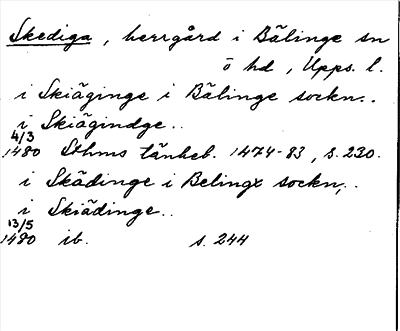 Skediga, herrgård i Bälinge sn
ö hd, Upps. l.
i Skiäginge i Bälinge sockn..
i Skiägindge..
4/3
1480 Sthms tänkeb. 1474-83, s. 230.
i Skädinge i Belingx sockn,..
i Skiädinge..
13/5
1480 ib. s. 244